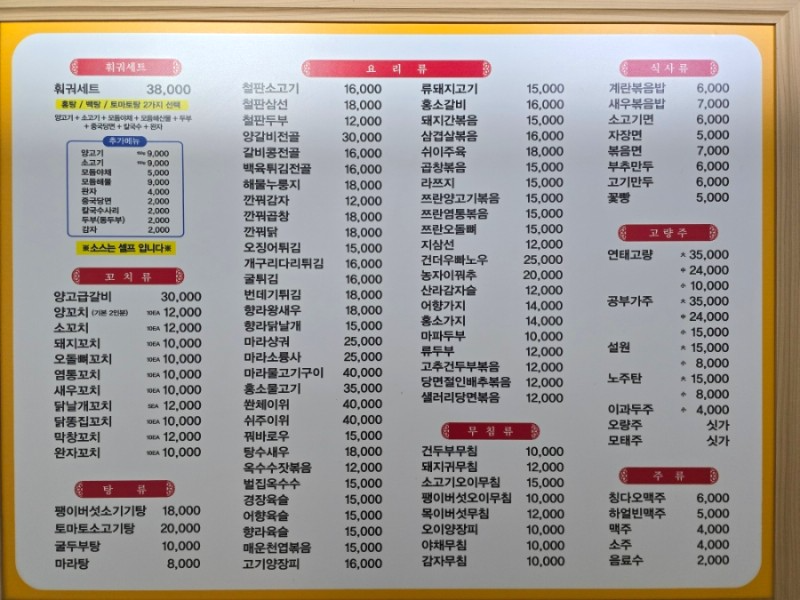 훠궈세트
훠궈세트 38,000
홍탕 / 백탕 / 토마토탕 2가지 선택
양고기 + 소고기 + 모듬야채 + 모듬해산물 + 두부
+ 중국당면 + 칼국수 + 완자
추가메뉴
양고기 9,000
소고기 9,000
모듬야채 5,000
모듬해물 9,000
완자 4,000
중국당면 2,000
칼국수사리 2,000
두부(동두부) 2,000
감자 2,000
※소스는 셀프 입니다※
꼬치류
양고급갈비 30,000
양꼬치 (기본 2인분) 10EA 12,000
소꼬치 10EA 12,000
돼지꼬치 10EA 10,000
오돌뼈꼬치 10EA 10,000
염통꼬치 10EA 10,000
새우꼬치 10EA 10,000
닭날개꼬치 5EA 12,000
닭똥집꼬치 10EA 10,000
막창꼬치 10EA 12,000
완자꼬치 10EA 10,000
탕류
팽이버섯소기기탕 18,000
토마토소고기탕 20,000
굴두부탕 10,000
마라탕 8,000
요리류
철판소고기 16,000
철판삼선 18,000
철판두부 12,000
양갈비전골 30,000
갈비콩전골 16,000
백육튀김전골 16,000
해물누룽지 18,000
깐풔감자 12,000
깐풔곱창 18,000
깐풔닭 18,000
오징어튀김 15,000
개구리다리튀김 16,000
굴튀김 16,000
번데기튀김 18,000
향라왕새우 18,000
향라닭날개 15,000
마라샹궈 25,000
마라소룡사 25,000
마라물고기구이 40,000
홍소물고기 35,000
쏸체이위 40,000
쉬주이위 40,000
꿔바로우 15,000
탕수새우 18,000
옥수수잣볶음 12,000
벌집옥수수 15,000
경장육슬 15,000
어향육슬 15,000
향라육슬 15,000
매운천엽볶음 15,000
고기양장피 16,000
류돼지고기 15,000
홍소갈비 16,000
돼지간볶음 15,000
삼겹살볶음 16,000
쉬이주육 18,000
곱창볶음 15,000
라쯔지 15,000
쯔란양고기볶음 15,000
쯔란염통볶음 15,000
쯔란오돌뼈 15,000
지삼선 12,000
건더우빠노우 25,000
농자이꿔추 20,000
산라감자슬 12,000
어향가지 14,000
홍소가지 14,000
마파두부 10,000
류두부 12,000
고추건두부볶음 12,000
당면절인배추볶음 12,000
샐러리당면볶음 12,000
무침류
건두부무침 10,000
돼지귀무침 12,000
소고기오이무침 15,000
팽이버섯오이무침 10,000
목이버섯무침 12,000
오이양장피 10,000
야채무침 10,000
감자무침 10,000
식사류
계란볶음밥 6,000
새우볶음밥 7,000
소고기면 6,000
자장면 5,000
볶음면 7,000
부추만두 6,000
고기만두 6,000
꽃빵 5,000
고량주
연태고량 大 35,000
中 24,000
小 10,000
공부가주 大 35,000
中 24,000
小 15,000
설원 大 15,000
小 8,000
노주탄 大 15,000
小 8,000
이과두주 小 4,000
오량주 싯가
모태주 싯가
주류
칭다오맥주 6,000
하얼빈맥주 5,000
맥주 4,000
소주 4,000
음료수 2,000